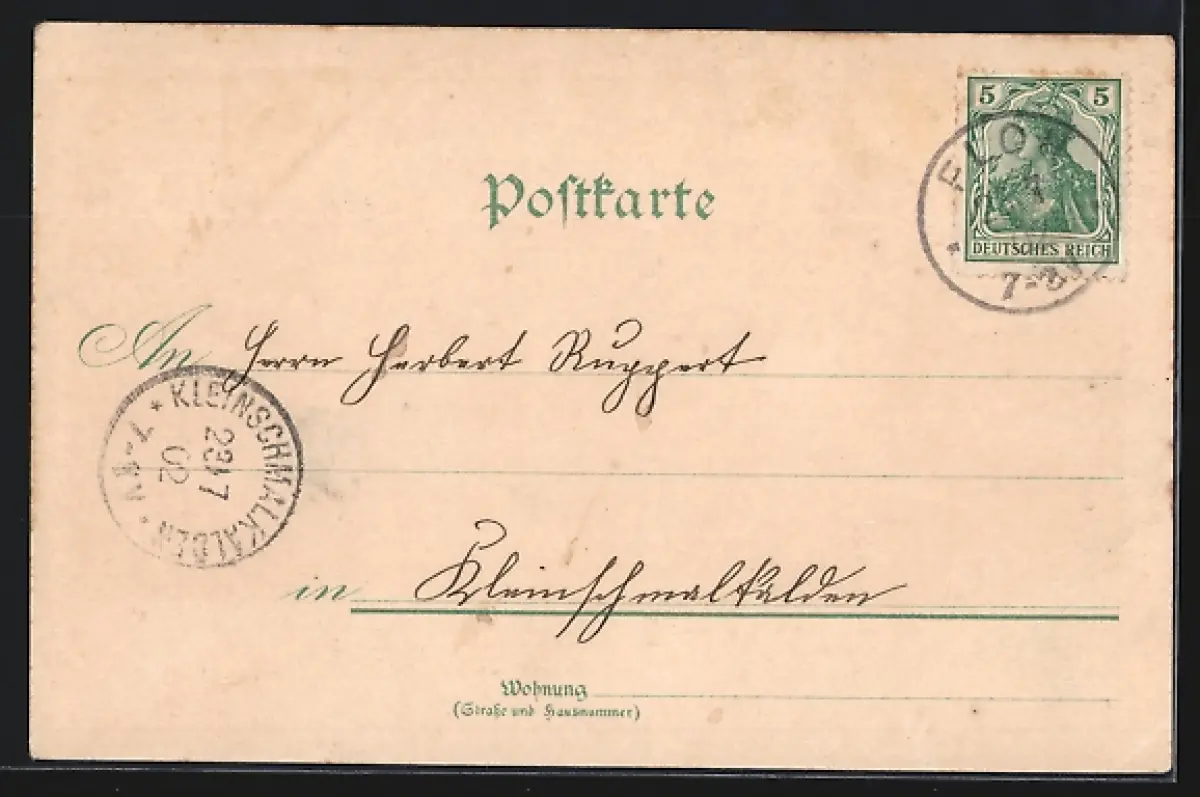 5 5
DEUTSCHES REICH
FLOH
7-8V
Postkarte
An Herrn Herbert Ruppert
* KLEINSCHMALKALDEN *
23 7
02
in Kleinschmalkalden
Wohnung
(Straße und Hausnummer)